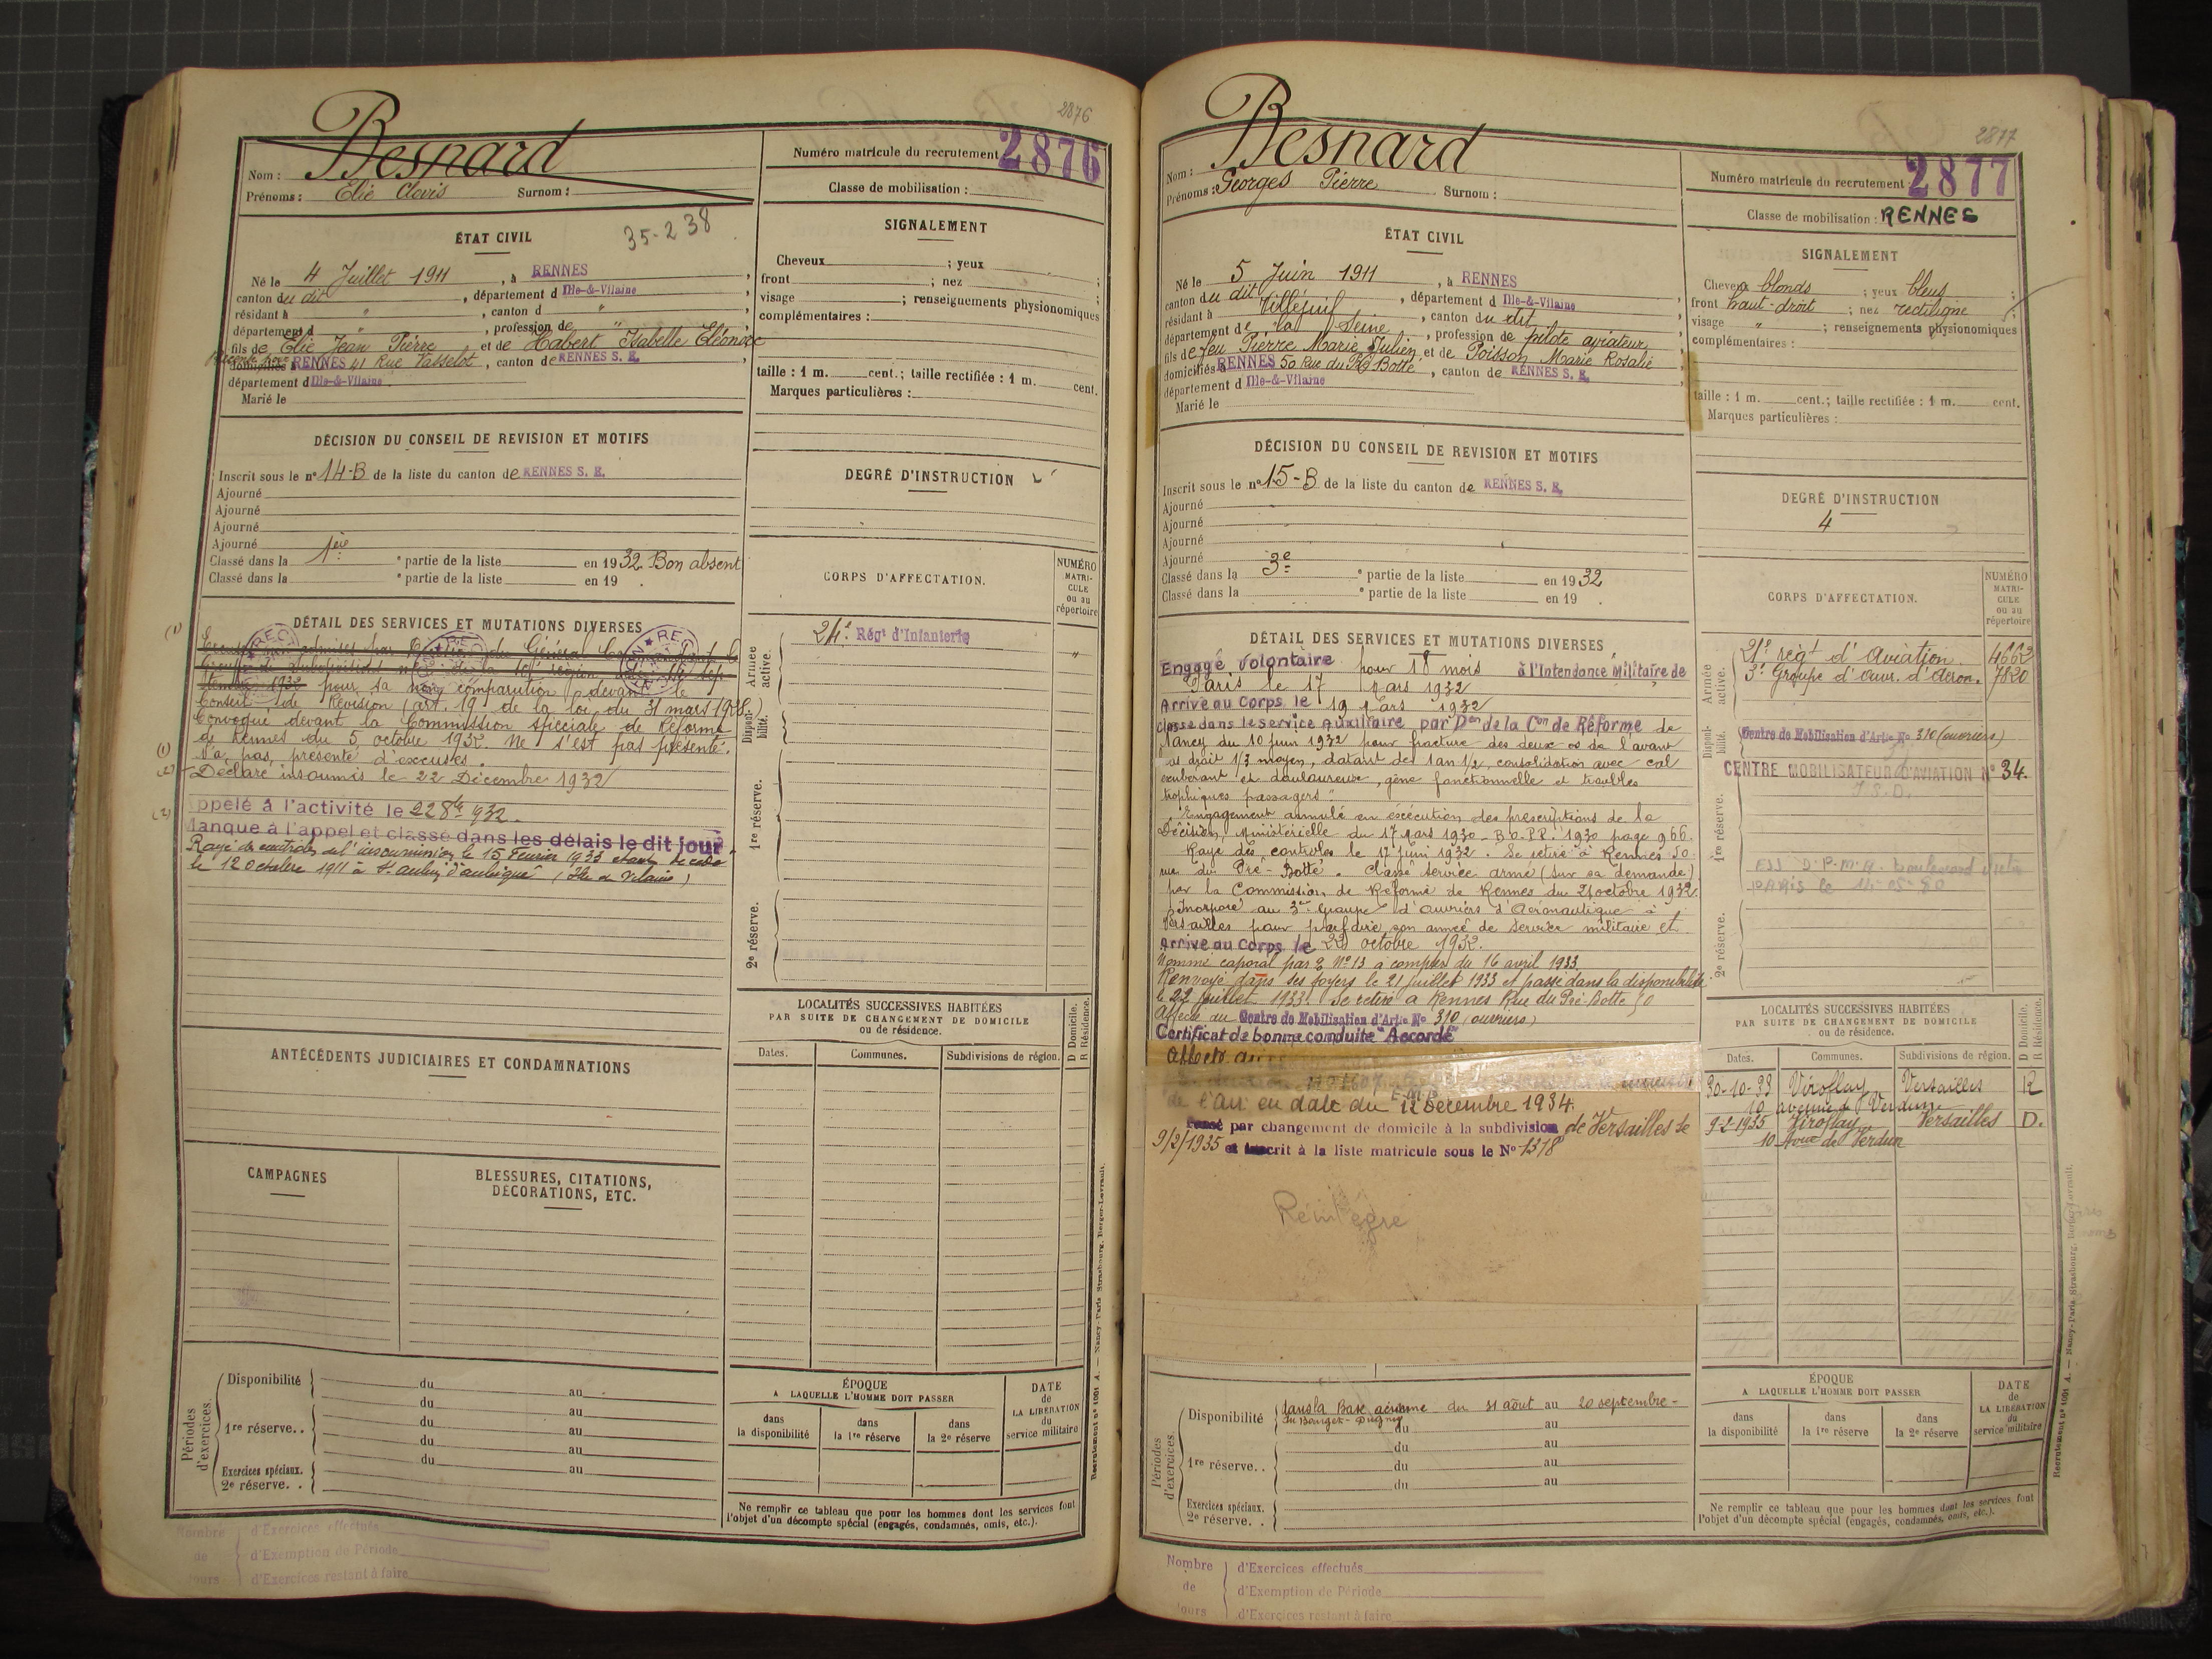 2876
Besnard
Nom :
Prénoms : Elie Clovis Surnom :
Numéro matricule du recrutement 2876
Classe de mobilisation :
ÉTAT CIVIL
35-2 38
Né le 4 Juillet 1911, à RENNES
canton du dit, département d Ille-&-Vilaine
résidant à ", canton d "
département d ", profession de "
fils de Elie Jean Pierre et de Habert Isabelle Eléonore
domiciliés à RENNES 41 Rue Vasselot, canton de RENNES S. E.
département d Ille-&-Vilaine
Marié le
SIGNALEMENT
Cheveux ; yeux ;
front ; nez ;
visage ; renseignements physionomiques
complémentaires :
taille : 1 m. cent.; taille rectifiée : 1 m. cent.
Marques particulières :
DÉCISION DU CONSEIL DE REVISION ET MOTIFS
Inscrit sous le nº 14-B de la liste du canton de RENNES S. E.
Ajourné
Ajourné
Ajourné
Ajourné
Classé dans la 1ère partie de la liste en 1932 Bon absent
Classé dans la e partie de la liste en 19 .
DEGRÉ D'INSTRUCTION
CORPS D'AFFECTATION.
NUMÉRO MATRI-CULE ou au répertoire
Armée active.
24e Régt d'Infanterie "
Disponi-bilité.
1re réserve.
2e réserve.
DÉTAIL DES SERVICES ET MUTATIONS DIVERSES
(1)
pour sa non comparution devant le
Conseil de Révision (art. 19 de la loi du 31 mars 1928.)
Convoqué devant la Commission spéciale de Réforme
de Rennes du 5 octobre 1932. Ne s'est pas présenté.
(1) N'a pas présenté d'excuses.
(2) Déclaré insoumis le 22 Décembre 1932
(2) Appelé à l'activité le 22 8bre 1932.
Manque à l'appel et classé dans les délais le dit jour
Rayé des contrôles de l'insoumission le 15 Février 1933 étant décédé
le 12 Octobre 1911 à St aubin d'aubigné (Ille et Vilaine)
ANTÉCÉDENTS JUDICIAIRES ET CONDAMNATIONS
LOCALITÉS SUCCESSIVES HABITÉES
PAR SUITE DE CHANGEMENT DE DOMICILE
ou de résidence.
D Domicile.
R Résidence.
Dates. Communes. Subdivisions de région.
CAMPAGNES
BLESSURES, CITATIONS,
DÉCORATIONS, ETC.
Périodes d'exercices.
Disponibilité du au
du au
1re réserve.. du au
du au
Exercices spéciaux. du au
2e réserve. .
ÉPOQUE
A LAQUELLE L'HOMME DOIT PASSER
dans la disponibilité
dans la 1re réserve
dans la 2e réserve
DATE de LA LIBÉRATION du service militaire
Ne remplir ce tableau que pour les hommes dont les services font
l'objet d'un décompte spécial (engagés, condamnés, omis, etc.).
Recrutement nº 1061 A. — Nancy-Paris Strasbourg, Berger-Levrault.
Nombre de jours
d'Exercices effectués
d'Exemption de Période
d'Exercices restant à faire
2877
Besnard
Nom :
Prénoms : Georges Pierre Surnom :
Numéro matricule du recrutement 2877
Classe de mobilisation : RENNES
ÉTAT CIVIL
Né le 5 Juin 1911, à RENNES
canton du dit, département d Ille-&-Vilaine
résidant à Villejuif, canton du dit
département de la Seine, profession de pilote aviateur
fils de feu Pierre Marie Julien et de Poisson Marie Rosalie
domiciliés à RENNES 50 Rue du Pré Botté, canton de RENNES S. E.
département d Ille-&-Vilaine
Marié le
SIGNALEMENT
Cheveux blonds ; yeux bleus ;
front haut-droit ; nez rectiligne ;
visage " ; renseignements physionomiques
complémentaires :
taille : 1 m. cent.; taille rectifiée : 1 m. cent.
Marques particulières :
DÉCISION DU CONSEIL DE REVISION ET MOTIFS
Inscrit sous le nº 15-B de la liste du canton de RENNES S. E.
Ajourné
Ajourné
Ajourné
Ajourné
Classé dans la 3e partie de la liste en 1932
Classé dans la e partie de la liste en 19 .
DEGRÉ D'INSTRUCTION
4
CORPS D'AFFECTATION.
NUMÉRO MATRI-CULE ou au répertoire
Armée active.
21e régt d'Aviation 4662
3e Groupe d'Ouvr. d'Aéron. 7820
Disponi-bilité.
Centre de Mobilisation d'Artie No 310 (ouvriers)
CENTRE MOBILISATEUR D'AVIATION No 34.
1re réserve.
2e réserve.
DÉTAIL DES SERVICES ET MUTATIONS DIVERSES
Engagé Volontaire pour 18 mois à l'Intendance Militaire de
Paris le 17 Mars 1932
Arrivé au Corps le 19 Mars 1932
Classé dans le service Auxiliaire par Don de la Con de Réforme de
Nancy du 10 juin 1932 pour fracture des deux os de l'avant
bras droit 1/3 moyen, datant de 1 an 1/2, consolidation avec cal
exubérant et douloureux, gêne fonctionnelle et troubles
trophiques passagers"
Engagement annulé en exécution des prescriptions de la
Décision Ministérielle du 17 Mars 1930 B.O.P.P. 1930 page 966.
Rayé des contrôles le 17 juin 1932. Se retire à Rennes 50
rue du Pré-Botté. Classé service armé (sur sa demande)
par la Commission de Réforme de Rennes du 21 octobre 1932.
Incorporé au 3e Groupe d'ouvriers d'Aéronautique à
Versailles pour parfaire son année de service militaire et
Arrivé au Corps le 22 octobre 1932.
Nommé caporal par O No 13 à compter du 16 avril 1933
Renvoyé dans ses foyers le 21 juillet 1933 et passé dans la disponibilité
le 22 juillet 1933. Se retire à Rennes Rue du Pré-Botté 50
Affecté au Centre de Mobilisation d'Artie No 310 (ouvriers)
Certificat de bonne conduite "Accordé"
Affecté au
de l'air en date du 12 Décembre 1934.
Passé par changement de domicile à la subdivision de Versailles le
9/2/1935 et inscrit à la liste matricule sous le No 1318
Réintégré
LOCALITÉS SUCCESSIVES HABITÉES
PAR SUITE DE CHANGEMENT DE DOMICILE
ou de résidence.
D Domicile.
R Résidence.
Dates. Communes. Subdivisions de région.
30-10-33 Viroflay Versailles R
10 avenue de Verdun
9-2-1935 Viroflay Versailles D.
10 Avue de Verdun
Périodes d'exercices.
Disponibilité dans la Base aérienne du 31 août au 20 septembre-
du Bourget-Dugny du au
du au
1re réserve.. du au
du au
Exercices spéciaux.
2e réserve. .
ÉPOQUE
A LAQUELLE L'HOMME DOIT PASSER
dans la disponibilité
dans la 1re réserve
dans la 2e réserve
DATE de LA LIBÉRATION du service militaire
Ne remplir ce tableau que pour les hommes dont les services font
l'objet d'un décompte spécial (engagés, condamnés, omis, etc.).
Recrutement nº 1061 A. — Nancy-Paris Strasbourg, Berger-Levrault.
Nombre de jours
d'Exercices effectués
d'Exemption de Période
d'Exercices restant à faire